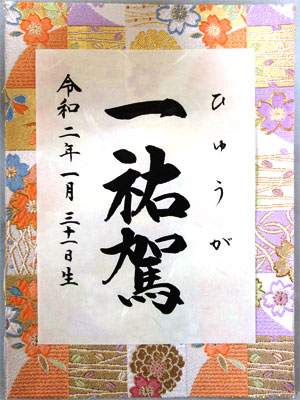 ひゅうが
一祐駕
令和二年一月三十一日生